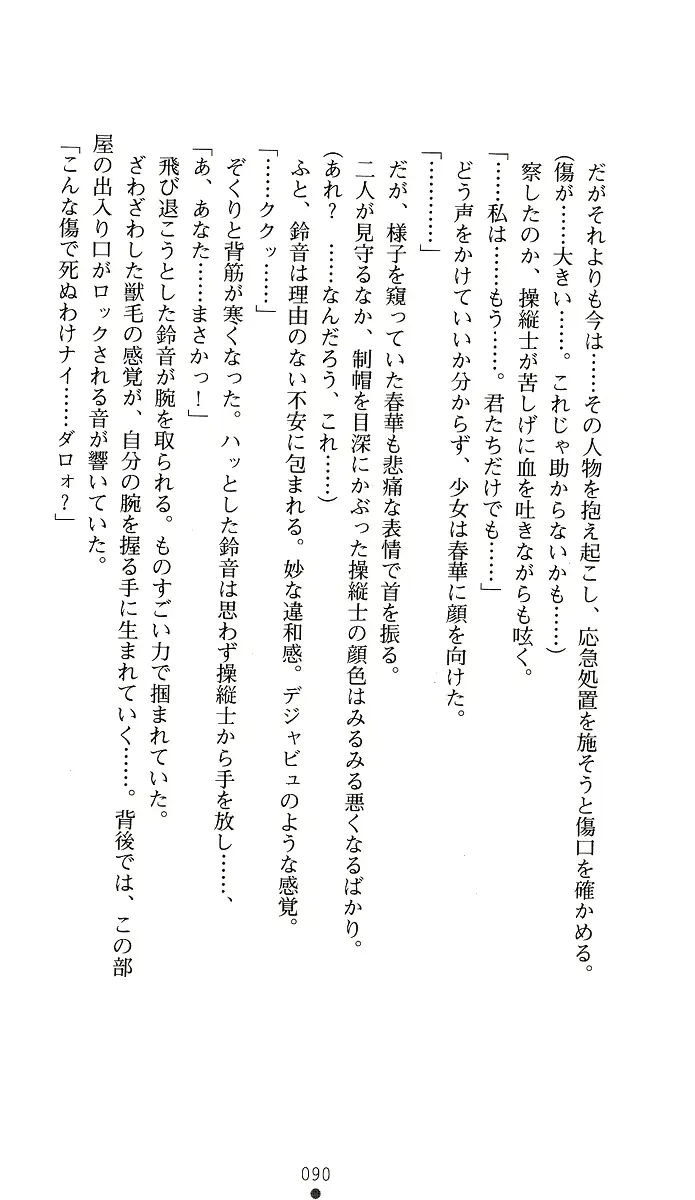 だがそれよりも今は……その人物を抱え起こし、応急処置を施そうと傷口を確かめる。
(傷が……大きい……。これじゃ助からないかも……)
察したのか、操縦士が苦しげに血を吐きながらも呟く。
「……私は……もう……。君たちだけでも……」
どう声をかけていいか分からず、少女は春華に顔を向けた。
「…………」
だが、様子を窺っていた春華も悲痛な表情で首を振る。
二人が見守るなか、制帽を目深にかぶった操縦士の顔色はみるみる悪くなるばかり。
(あれ? ……なんだろう、これ……)
ふと、鈴音は理由のない不安に包まれる。妙な違和感。デジャビュのような感覚。
「……ククッ……」
ぞくりと背筋が寒くなった。ハッとした鈴音は思わず操縦士から手を放し……、
「あ、あなた……まさかっ!」
飛び退こうとした鈴音が腕を取られる。ものすごい力で掴まれていた。
ざわざわした獣毛の感覚が、自分の腕を握る手に生まれていく……。背後では、この部
屋の出入り口がロックされる音が響いていた。
「こんな傷で死ぬわけナイ……ダロォ?」
090